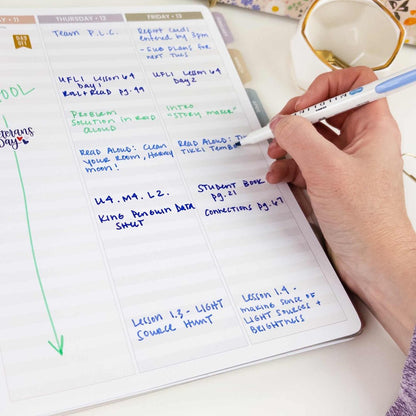 • 11
THURSDAY • 12
FRIDAY • 13
DAY
OFF
OOL
Veterans
Day
Team P.L.C.
Report cards
entered by 3pm
- Sub plans for
next Tues
UFLI Lesson 64
Day 1
UFLI Lesson 64
Day 2
Problem
Solution in Read
Aloud
Intro
"Story Maker"
Read Aloud: Clean
your room, Harvey
Moon!
Read Aloud:
Tikki
U4.M4.L2.
King Penguin Data
Sheet
Student Book
pg. 21
Connections pg. 67
Lesson 1.3 - Light
Source Hunt
Lesson 1.4 -
making sense of
light sources +
Brightness